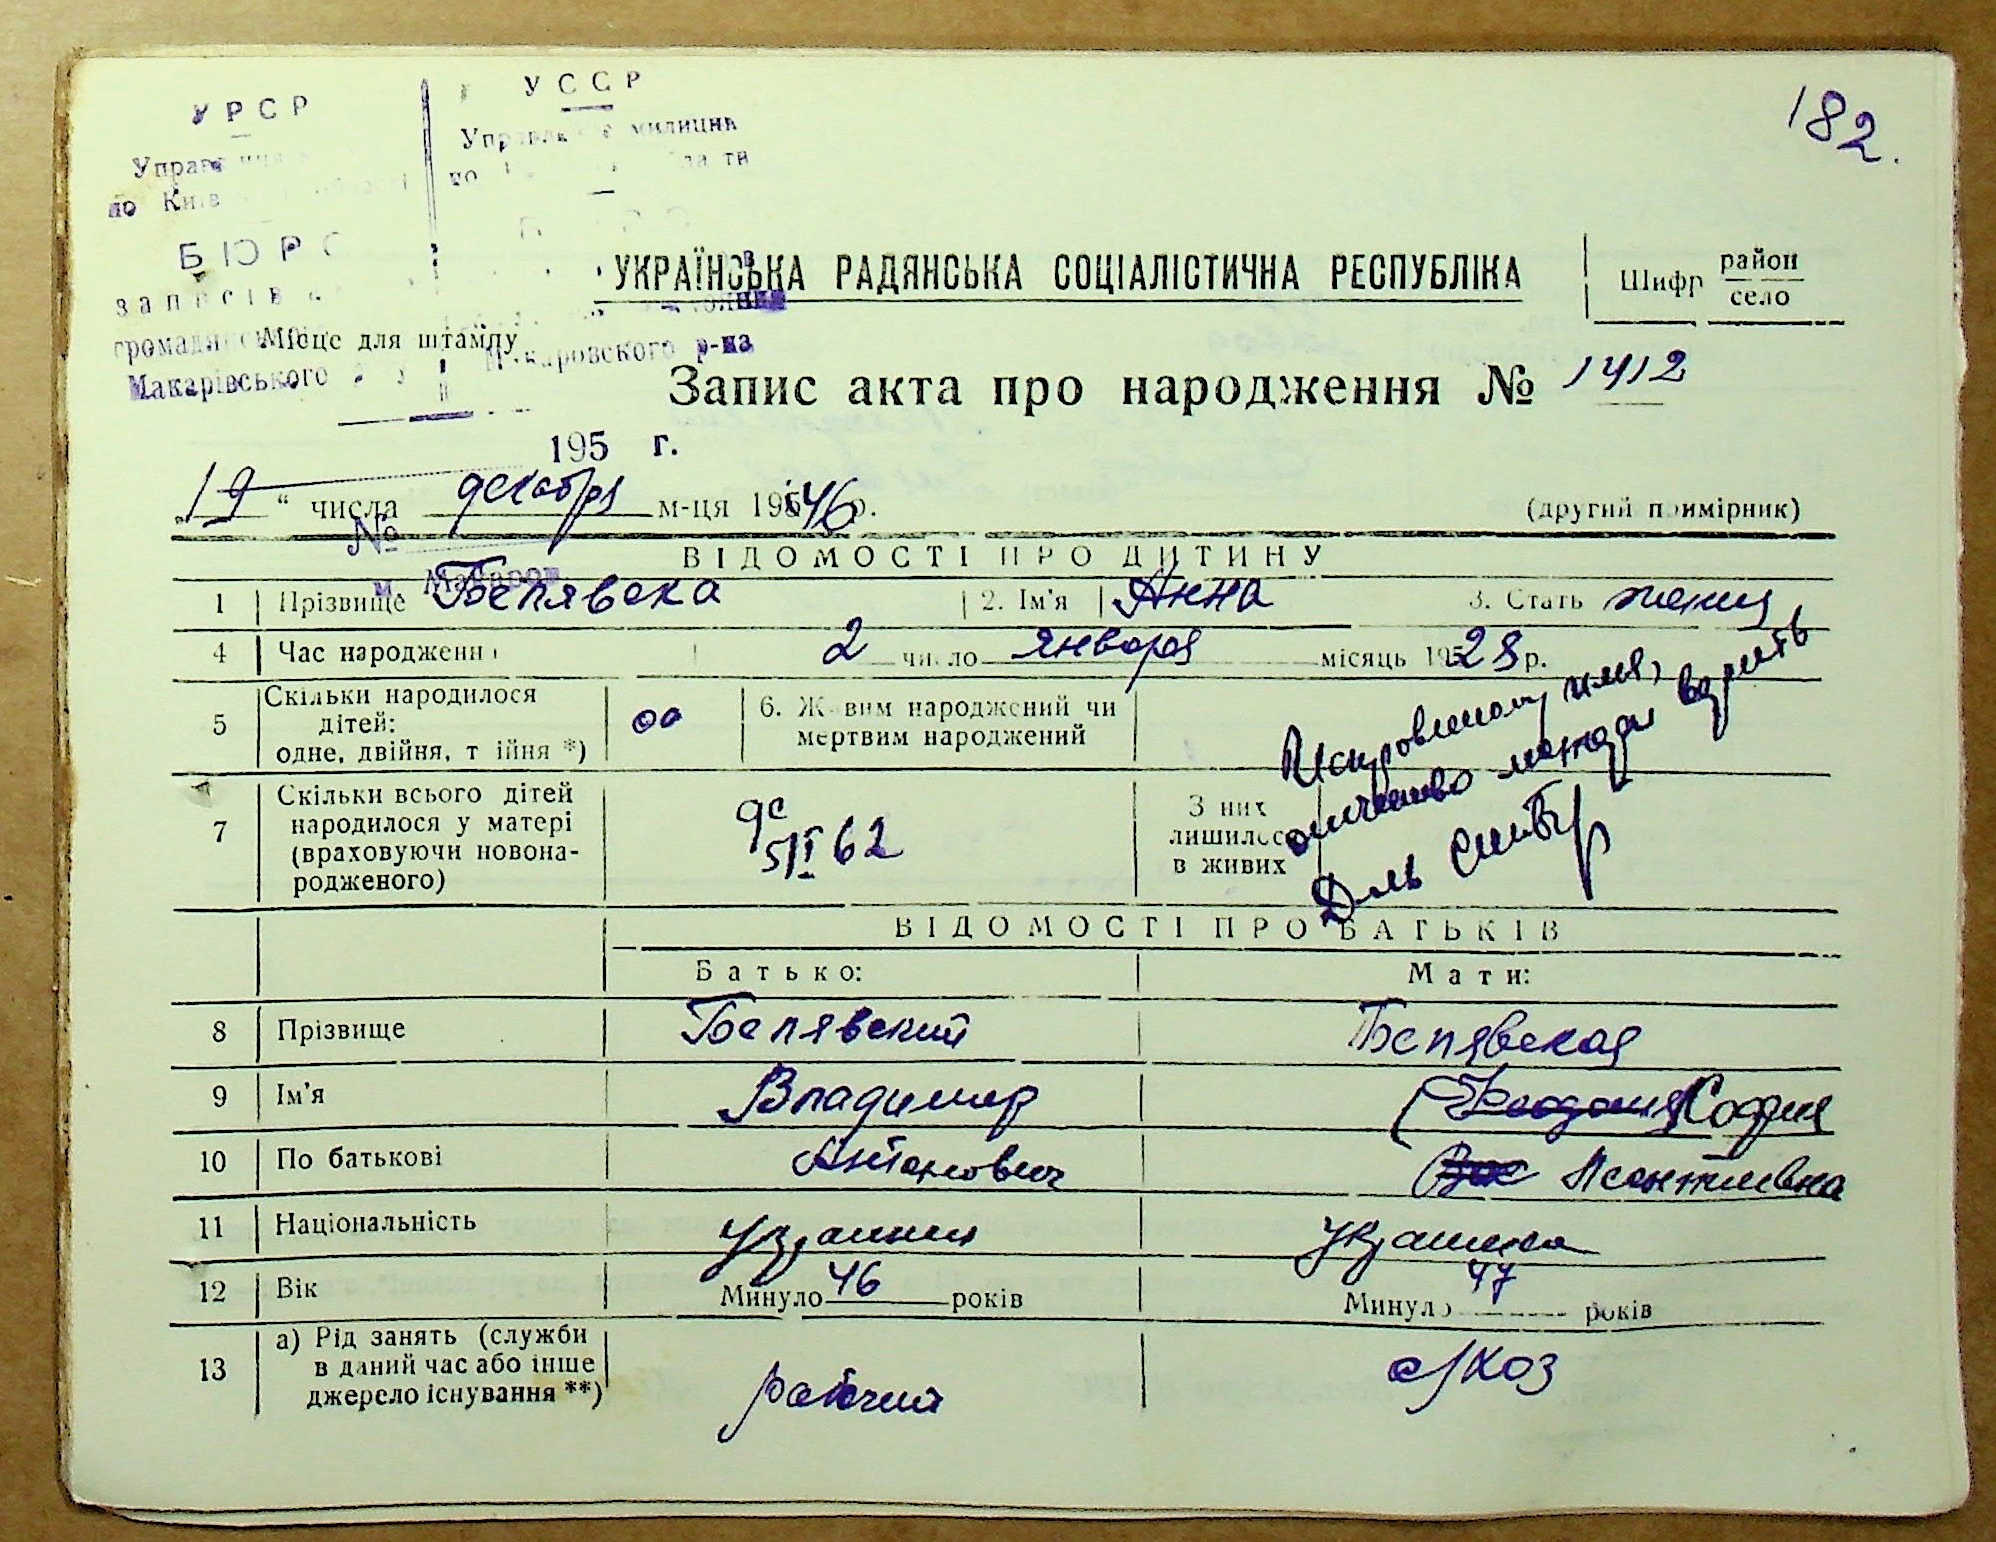 182.
УРСР
УССР
Управ
милиции
по Київ
по
БЮРО
записів
громадян
Макарівського
Макаровского р-на
Місце для штампу
УКРАЇНСЬКА РАДЯНСЬКА СОЦІАЛІСТИЧНА РЕСПУБЛІКА
Шифр район
село
Запис акта про народження № 1412
195 г.
„19“ числа декабря м-ця 1946 р.
(другий примірник)
№
м. Макаров
ВІДОМОСТІ ПРО ДИТИНУ
1 Прізвище Белявска 2. Ім'я Анна 3. Стать женщ
4 Час народження 2 число января місяць 1928 р.
5 Скільки народилося дітей: одне, двійня, трійня *) 6. Живим народжений чи мертвим народжений
7 Скільки всього дітей народилося у матері (враховуючи новонародженого) 62 З них лишилось в живих
Исправленому имя,
отчество матери верить
ВІДОМОСТІ ПРО БАТЬКІВ
Батько: Мати:
8 Прізвище Белявский Белявская
9 Ім'я Владимир София
10 По батькові Антонович Леонтиевна
11 Національність украинец украинка
12 Вік Минуло 46 років Минуло 47 років
13 а) Рід занять (служби в даний час або інше джерело існування **) рабочий с/хоз